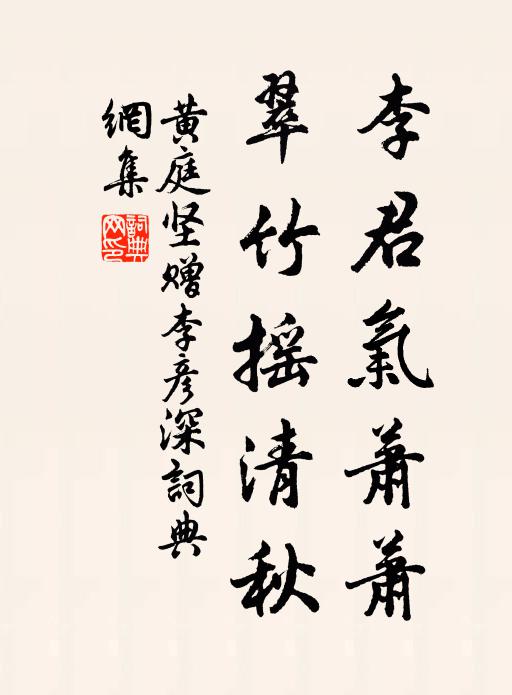 李君氣蕭蕭
翠竹摇清秋
黄庭坚赠李彦深詞典
網集
詞典
网印